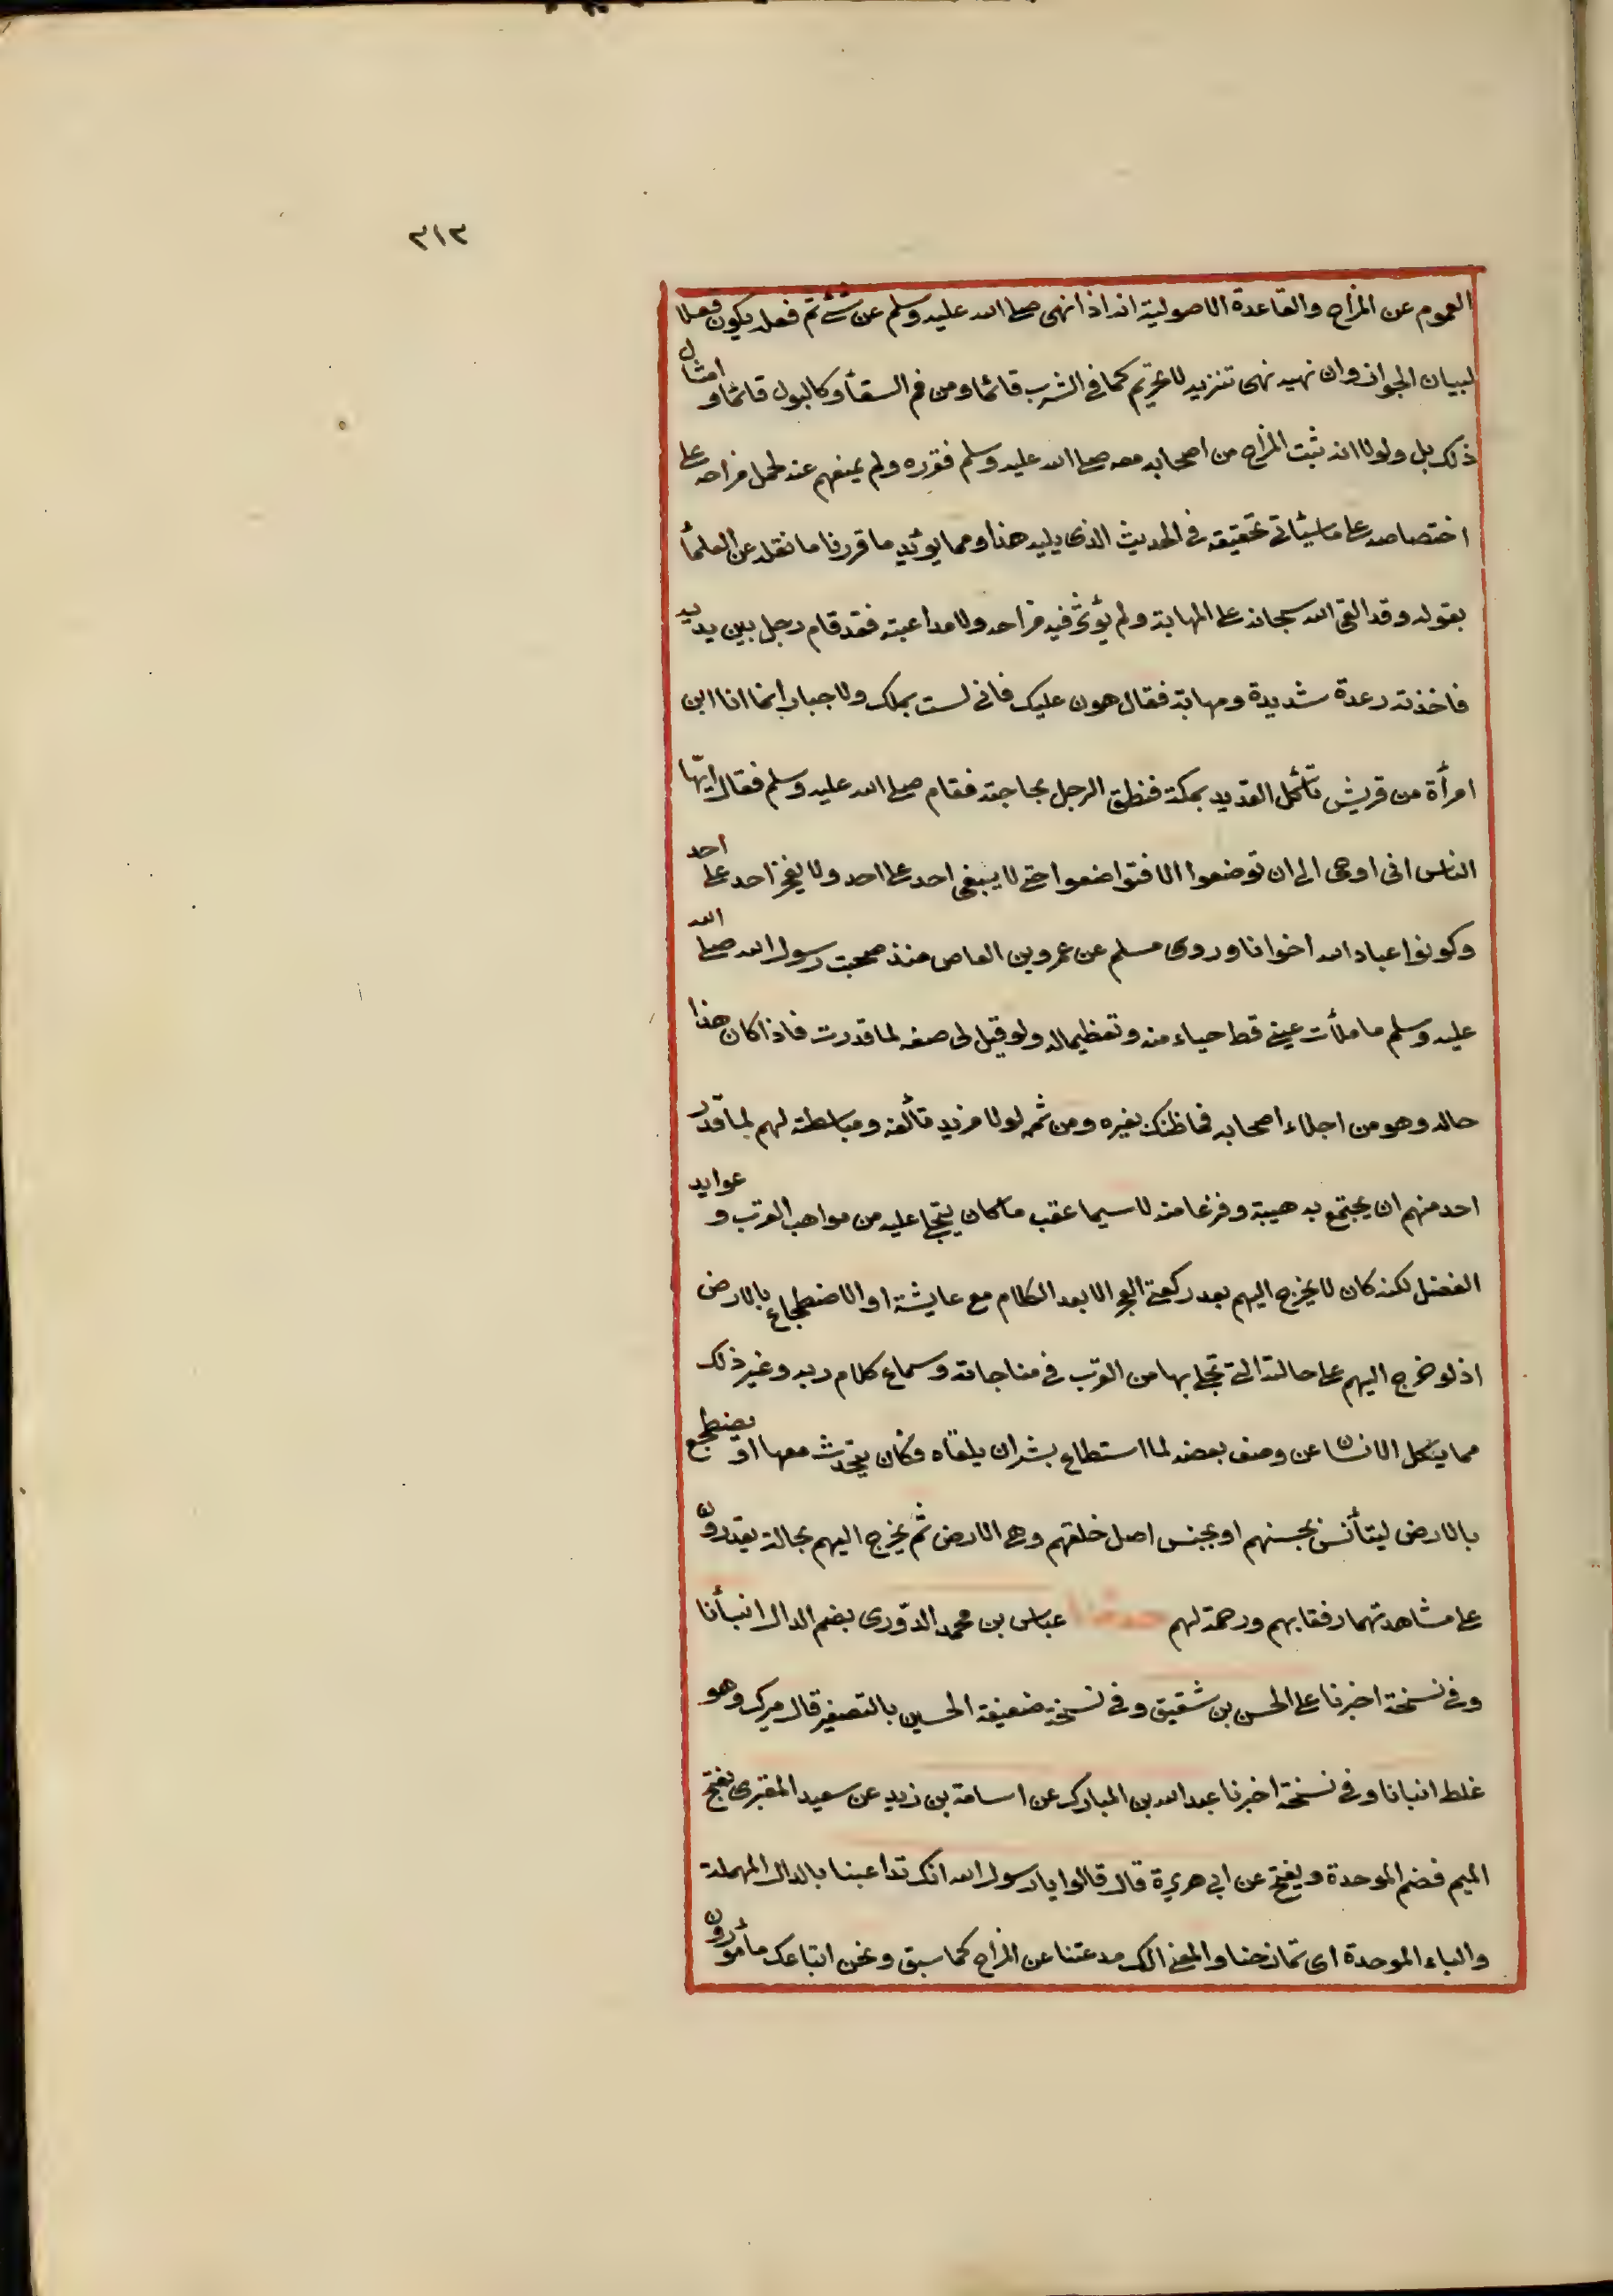 ٣١٣
العموم عن المزاح والقاعدة الاصولية انه اذا نهى صلى الله عليه وسلم عن شئ ثم فعله يكون فعلا
لبيان الجواز وان نهيه نهى تنزيه لا تحريم كما في الشرب قائما ومن فم السقأ وكالبول قائما و امثال
ذلك بل ولولا انه ثبت المزاح من اصحابه معه صلى الله عليه وسلم فقرره ولم يمنعهم عنه لحمل مزاحه على
اختصاصه على ما سيأتي تحقيقه في الحديث الذي يليه هذا ومما يؤيد ما قررنا ما نقل عن العلمأ
بقوله وقد القى الله سبحانه على المهابة ولم يؤثر فيه مزاحه ولا مداعبته فقد قام رجل بين يديه
فاخذته رعدة شديدة ومهابة فقال هون عليك فاني لست بملك ولا جبار انما انا ابن
امرأة من قريش تأكل القديد بمكة فنطق الرجل بحاجته فقام صلى الله عليه وسلم فقال ايها
الناس اني اوحى الى ان توضعوا الا فتواضعوا حتى لا يبغى احد على احد ولا يفخر احد على احد
وكونوا عباد الله اخوانا وروى مسلم عن عمرو بن العاص منذ صحبت رسول الله صلى الله
عليه وسلم ما ملأت عيني قط حياء منه وتعظيما له ولو قيل لى صفه لما قدرت فاذا كان هذا
حاله وهو من اجلاء اصحابه فما ظنك بغيره ومن ثمه لولا مزيد تألفه ومباسطته لهم لما قدر
احد منهم ان يجتمع به هيبة وفرغا منه لا سيما عقب ما كان يتجلى عليه من مواهب القرب و عوايد
الفضل لكنه كان لا يخرج اليهم بعد ركعتي الفجر الا بعد الكلام مع عايشة او الاضطجاع بالارض
اذ لو خرج اليهم على حالته التي تجلى بها من القرب في مناجاته وسماع كلام ربه وغير ذلك
مما يكل الانسان عن وصف بعضه لما استطاع بشر ان يلقاه فكان يتحدث معها او يضطجع
بالارض ليتأنس بجسنهم او بجنس اصل خلقهم وهي الارض ثم يخرج اليهم بحالة يقدرون
على مشاهدتهما رفقا بهم ورحمة لهم حدثنا عباس بن محمد الدّوري بضم الدال انبأنا
وفي نسخة اخبرنا على الحسن بن شقيق وفي نسخة ضعيفة الحسين بالتصغير قال ميرك وهو
غلط انبانا وفي نسخة اخبرنا عبد الله بن المبارك عن اسامة بن زيد عن سعيد المقبرى بفتح
الميم فضم الموحدة ويفتح عن ابي هريرة قال قالوا يا رسول الله انك تداعبنا بالدال المهملة
والباء الموحدة اى تمازحنا والمعنى انك مدعتنا عن المزاح كما سبق ونحن اتباعك مأمورون